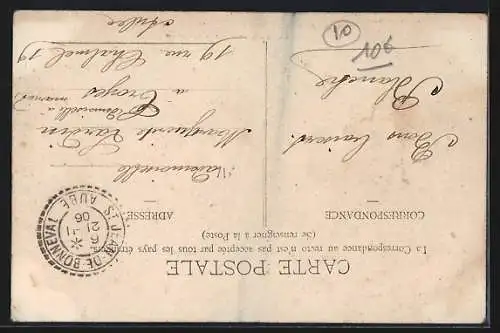 CARTE POSTALE
La Correspondance au recto n'est pas acceptée par tous les pays étrangers
(Se renseigner à la Poste)
CORRESPONDANCE
ADRESSE
Bons baisers.
Blanche
Mademoiselle
Marguerite
à Troyes
19 rue Chalmel 19
Aube
ST JEAN-DE-BONNEVAL
6 * 
21 - 11
06
AUBE
10
10€